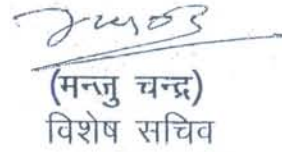 (मनजु चन्द्र)
विशेष सचिव